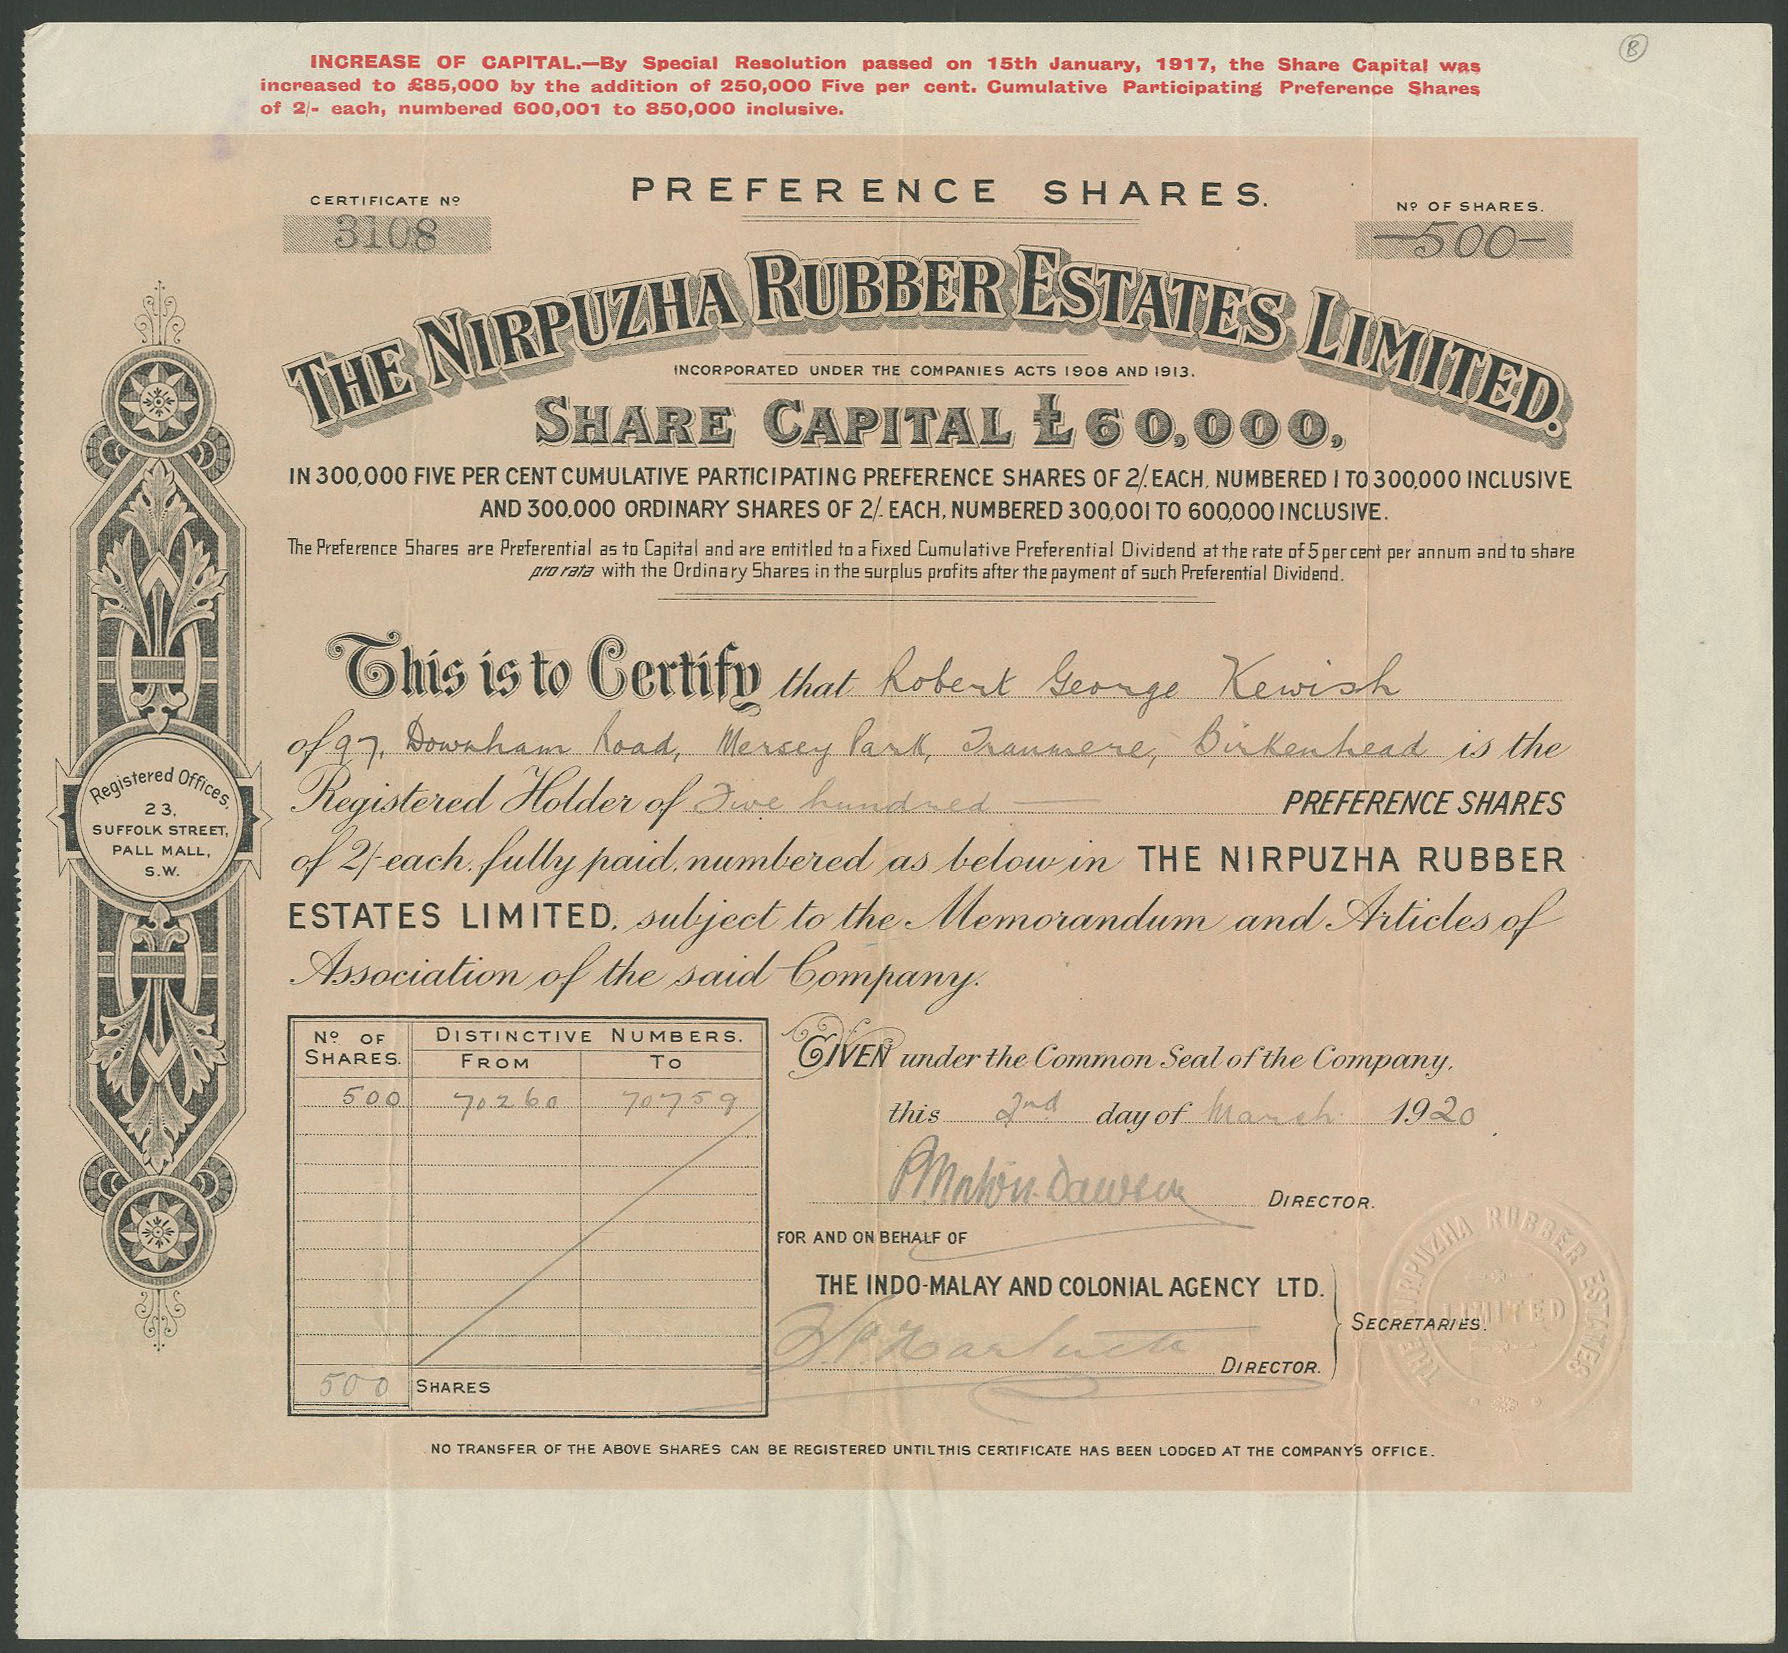 INCREASE OF CAPITAL.—By Special Resolution passed on 15th January, 1917, the Share Capital was
increased to £85,000 by the addition of 250,000 Five per cent. Cumulative Participating Preference Shares
of 2/- each, numbered 600,001 to 850,000 inclusive.
B
PREFERENCE SHARES.
CERTIFICATE Nº
3108
Nº OF SHARES.
—500—
THE NIRPUZHA RUBBER ESTATES LIMITED.
INCORPORATED UNDER THE COMPANIES ACTS 1908 AND 1913.
SHARE CAPITAL £60,000,
IN 300,000 FIVE PER CENT CUMULATIVE PARTICIPATING PREFERENCE SHARES OF 2/. EACH, NUMBERED 1 TO 300,000 INCLUSIVE
AND 300,000 ORDINARY SHARES OF 2/- EACH, NUMBERED 300,001 TO 600,000 INCLUSIVE.
The Preference Shares are Preferential as to Capital and are entitled to a Fixed Cumulative Preferential Dividend at the rate of 5 per cent per annum and to share
pro rata with the Ordinary Shares in the surplus profits after the payment of such Preferential Dividend.
This is to Certify that Robert George Kewish
of 97, Downham Road, Mersey Park, Tranmere, Birkenhead is the
Registered Holder of Five hundred — PREFERENCE SHARES
of 2/- each, fully paid, numbered as below in THE NIRPUZHA RUBBER
ESTATES LIMITED, subject to the Memorandum and Articles of
Association of the said Company.
Registered Offices,
23,
SUFFOLK STREET,
PALL MALL,
S.W.
Nº OF SHARES. DISTINCTIVE NUMBERS.
FROM TO
500 70260 70759
500 SHARES
GIVEN under the Common Seal of the Company,
this 2nd day of March 1920
Dawson DIRECTOR.
FOR AND ON BEHALF OF
THE INDO-MALAY AND COLONIAL AGENCY LTD.
SECRETARIES.
DIRECTOR.
THE NIRPUZHA RUBBER ESTATES
LIMITED
NO TRANSFER OF THE ABOVE SHARES CAN BE REGISTERED UNTIL THIS CERTIFICATE HAS BEEN LODGED AT THE COMPANY'S OFFICE.